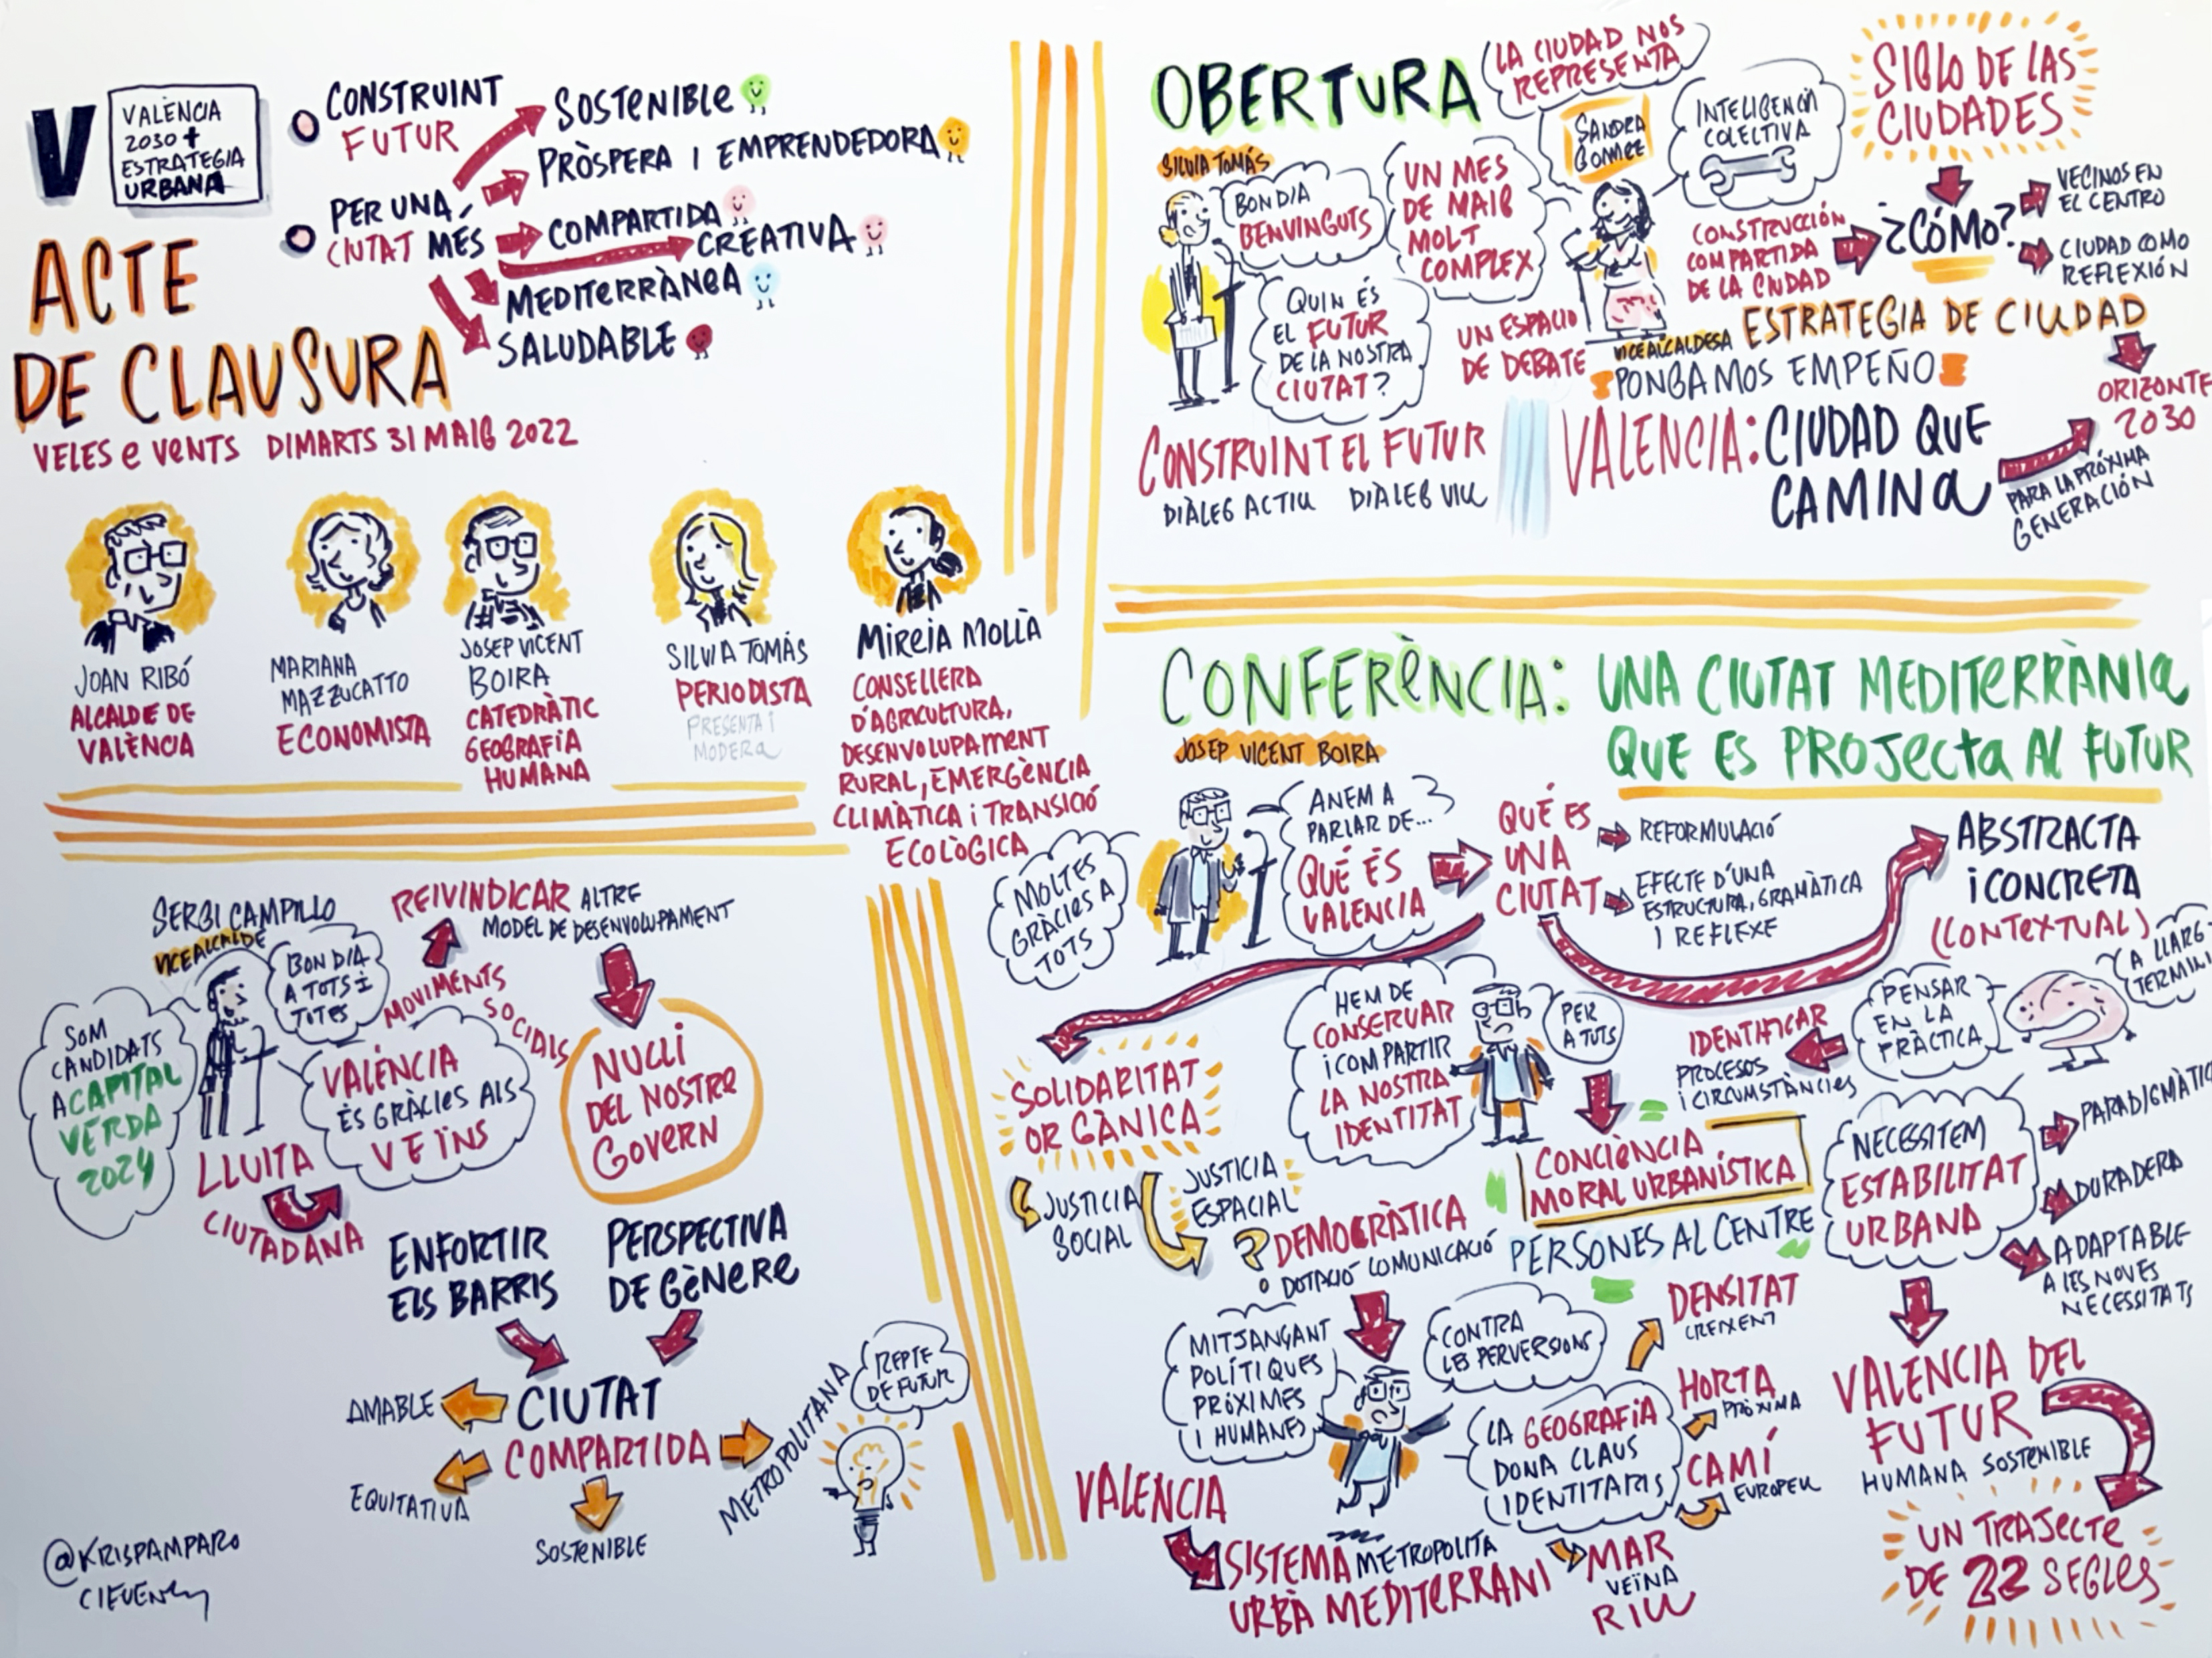 V
VALÈNCIA
2030 +
ESTRATEGIA
URBANA
CONSTRUINT
FUTUR
PER UNA
CIUTAT MÉS
SOSTENIBLE
PRÒSPERA I EMPRENDEDORA
COMPARTIDA
CREATIVA
MEDITERRÀNEA
SALUDABLE
ACTE
DE CLAUSURA
VELES e VENTS DIMARTS 31 MAIG 2022
JOAN RIBÓ
ALCALDE DE
VALÈNCIA
MARIANA
MAZZUCATTO
ECONOMISTA
JOSEP VICENT
BOIRA
CATEDRÀTIC
GEOGRAFIA
HUMANA
SILVIA TOMÁS
PERIODISTA
PRESENTA I
MODERA
MIREIA MOLLÀ
CONSELLERA
D'AGRICULTURA,
DESENVOLUPAMENT
RURAL, EMERGÈNCIA
CLIMÀTICA i TRANSICIÓ
ECOLÒGICA
SERGI CAMPILLO
VICEALCALDE
BON DIA
A TOTS I
TOTES
SOM
CANDIDATS
A CAPITAL
VERDA
2024
REIVINDICAR ALTRE
MODEL DE DESENVOLUPAMENT
MOVIMENTS
SOCIALS
VALÈNCIA
ÉS GRÀCIES ALS
VEÏNS
LLUITA
CIUTADANA
NUCLI
DEL NOSTRE
GOVERN
ENFORTIR
ELS BARRIS
PERSPECTIVA
DE GÈNERE
CIUTAT
COMPARTIDA
AMABLE
EQUITATIVA
SOSTENIBLE
METROPOLITANA
REPTE
DE FUTUR
@KRISPAMPARO
OBERTURA
SILVIA TOMÁS
BON DIA
BENVINGUTS
UN MES
DE MAIG
MOLT
COMPLEX
QUIN ÉS
EL FUTUR
DE LA NOSTRA
CIUTAT?
CONSTRUINT EL FUTUR
DIÀLEG ACTIU DIÀLEG VIU
LA CIUDAD NOS
REPRESENTA
SANDRA
GOMEZ
INTELIGENCIA
COLECTIVA
SIGLO DE LAS
CIUDADES
CONSTRUCCIÓN
COMPARTIDA
DE LA CIUDAD
¿CÓMO?
VECINOS EN
EL CENTRO
CIUDAD COMO
REFLEXIÓN
UN ESPACIO
DE DEBATE
VICEALCALDESA
ESTRATEGIA DE CIUDAD
PONGAMOS EMPEÑO
VALENCIA: CIUDAD QUE
CAMINA
ORIZONTE
2030
PARA LA PRÓXIMA
GENERACIÓN
CONFERÈNCIA: UNA CIUTAT MEDITERRÀNIA
QUE ES PROJECTA AL FUTUR
JOSEP VICENT BOIRA
MOLTES
GRÀCIES A
TOTS
ANEM A
PARLAR DE...
QUÉ ÉS
VALENCIA
QUÉ ES
UNA
CIUTAT
REFORMULACIÓ
EFECTE D'UNA
ESTRUCTURA, GRAMÀTICA
I REFLEXE
ABSTRACTA
i CONCRETA
(CONTEXTUAL)
A LLARG
TERMINI
PENSAR
EN LA
PRÀCTICA
IDENTIFICAR
PROCESOS
i CIRCUMSTÀNCIES
SOLIDARITAT
ORGÀNICA
JUSTICIA
SOCIAL
JUSTICIA
ESPACIAL
HEM DE
CONSERVAR
i COMPARTIR
LA NOSTRA
IDENTITAT
PER
A TOTS
CONCIÈNCIA
MORAL URBANÍSTICA
PERSONES AL CENTRE
DEMOCRÀTICA
DOTACIÓ COMUNICACIÓ
NECESSITEM
ESTABILITAT
URBANA
PARADIGMÀTIC
DURADERA
ADAPTABLE
A LES NOVES
NECESSITATS
MITJANÇANT
POLÍTIQUES
PRÓXIMES
I HUMANES
CONTRA
LES PERVERSIONS
LA GEOGRAFIA
DONA CLAUS
IDENTITARIS
DENSITAT
CREIXENT
HORTA
PRÒXIMA
CAMÍ
EUROPEU
MAR
VEÏNA
RIU
VALENCIA
SISTEMA METROPOLITA
URBÀ MEDITERRANI
VALENCIA DEL
FUTUR
HUMANA SOSTENIBLE
UN TRAJECTE
DE 22 SEGLES